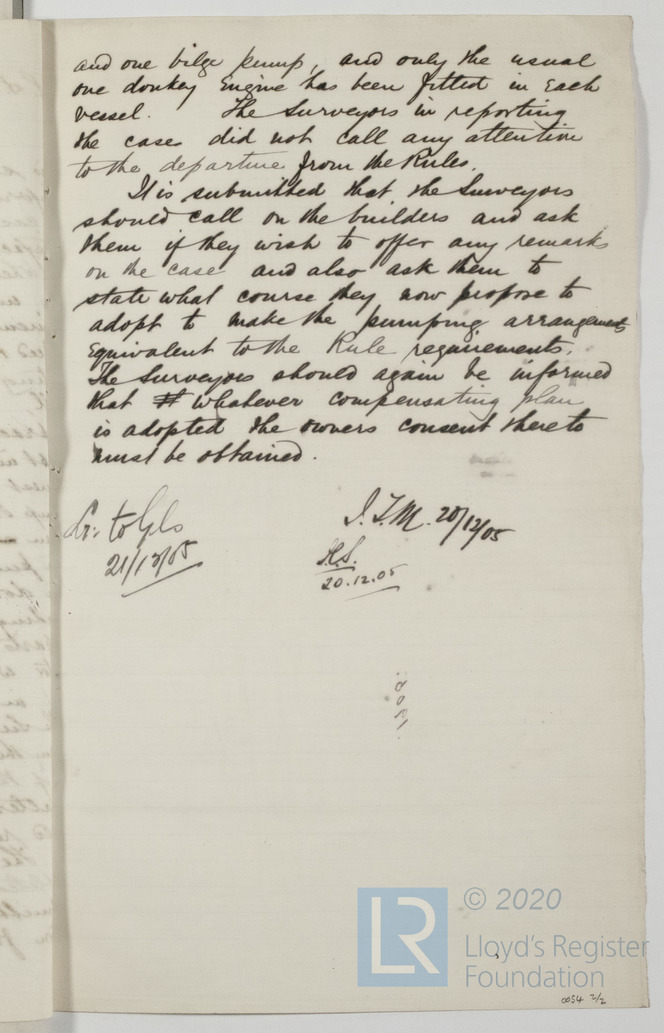 and one bilge pump, and only the usual
one donkey Engine has been fitted in Each
vessel. The Surveyors in reporting
the cases did not call any attention
to the departure from the Rules.
It is submitted that the Surveyors
should call on the builders and ask
them if they wish to offer any remarks
on the case and also ask them to
state what course they now propose to
adopt to make the pumping arrangements
Equivalent to the Rule requirements.
The Surveyors should again be informed
that whatever compensating plan
is adopted the owners consent thereto
must be obtained.
Lr: to Gls
21/12/05
J.T.M. 20/12/05
H.S.
20.12.05
© 2020
LR
Lloyd's Register
Foundation
0054 2/2